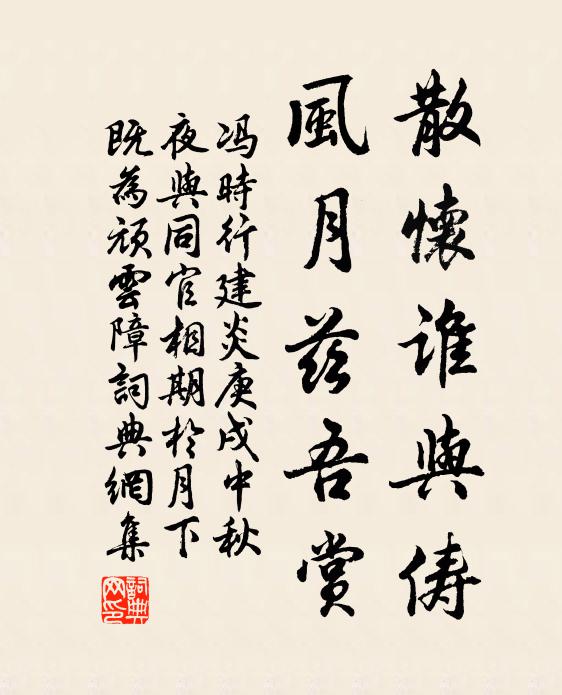 散懷誰與俦
風月茲吾賞
冯時行建炎庚戌中秋
夜與同官相期於月下
既為頑雲障詞典網集
詞典网印